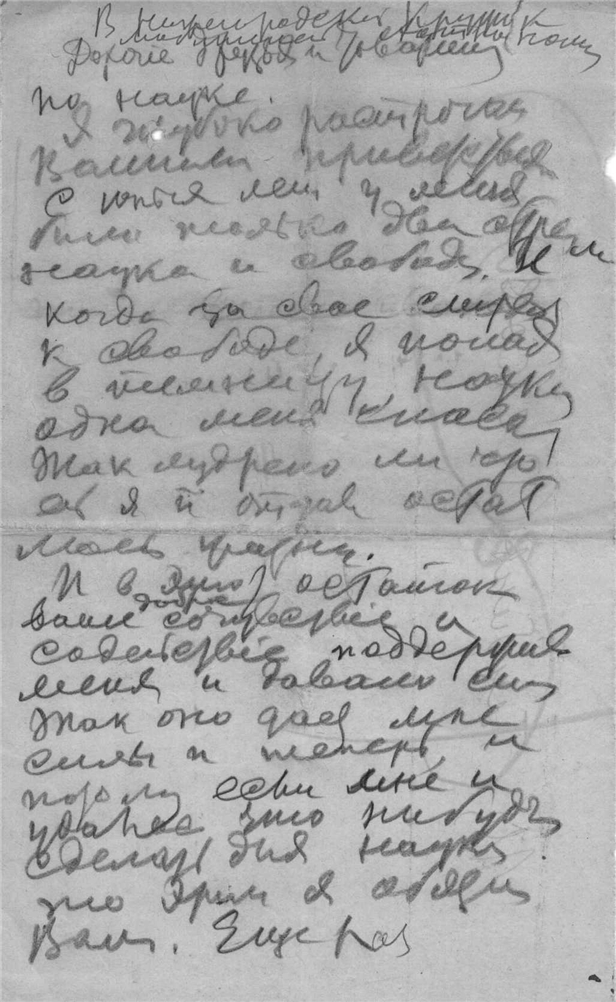 В Нижегородский Кружок
Дорогие друзья и товарищи
по науке.
Я глубоко растроган
Вашими приветствиями
С юных лет у меня
было только два стрем
наука и свобода. И
когда за свое стрем
к свободе, я попал
в темницу наука
одна меня спасла
Так мудрено ли что
ей я и отдал остат
моей жизни.
И в этот остаток
ваше доброе сочувствие и
содействие поддержив
меня и давало силы
Так оно дает мне
силы и теперь, и
потому если мне и
удалось что нибудь
сделать для науки
то этим я обязан
Вам. Еще раз